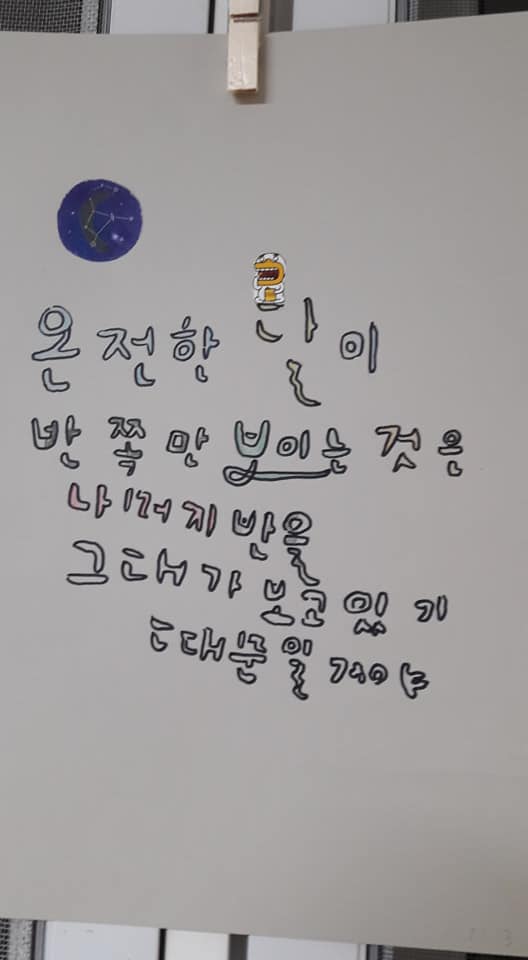 온전한 달이
반쪽만 보이는 것은
나머지 반을
그대가 보고 있기
때문일 거야